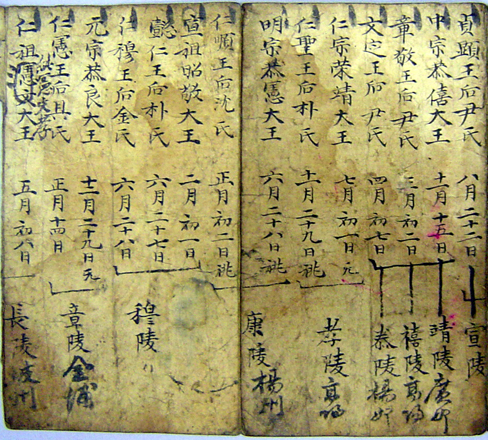 貞顯王后尹氏 八月二十二日 宣陵
中宗恭僖大王 十一月十五日 靖陵廣州
章敬王后尹氏 三月初二日 禧陵高陽
文定王后尹氏 四月初七日 泰陵楊州
仁宗荣靖大王 七月初一日 元
仁聖王后朴氏 十一月二十九日祧 孝陵高陽
明宗恭憲大王 六月二十八日祧 康陵楊州
仁順王后沈氏 正月初二日祧
宣祖昭敬大王 二月初一日
懿仁王后朴氏 六月二十七日 穆陵
仁穆王后金氏 六月二十八日
元宗恭良大王 十二月二十九日元
仁憲王后具氏 正月十四日 章陵金浦
仁祖大王 五月初六日 長陵交河